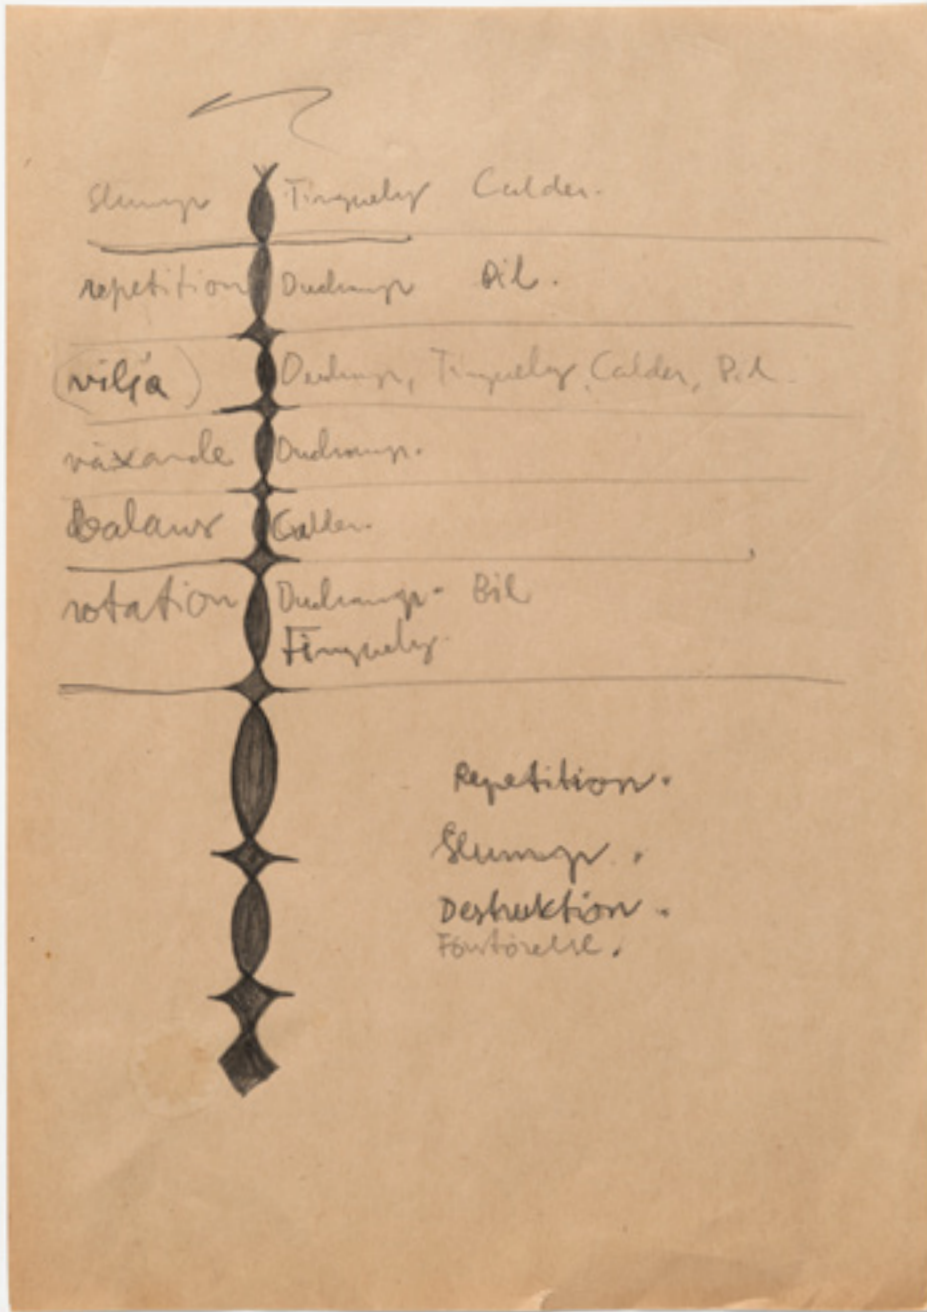 Slump Tinguely Calder.
repetition Duchamp Bil.
vilja Duchamp, Tinguely, Calder, Bil
växande Duchamp.
Balans Calder.
rotation Duchamp. Bil
Tinguely.
Repetition.
Slump.
Destruktion.
Förstörelse.